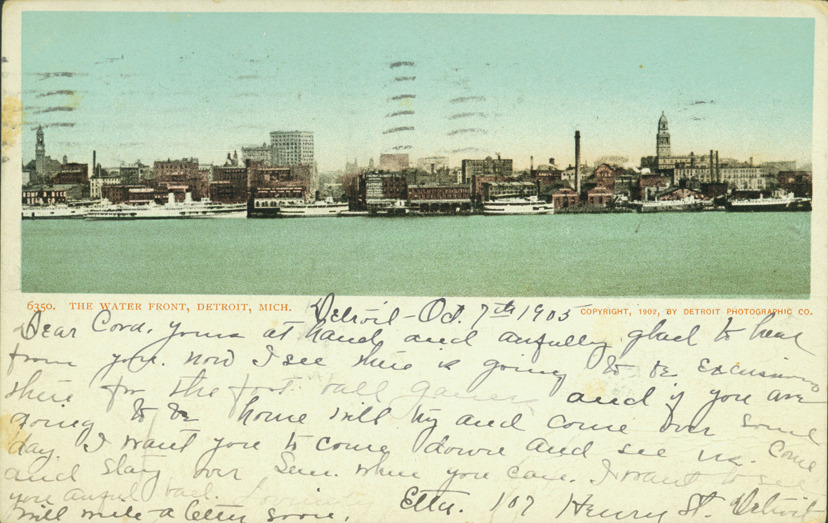 6350. THE WATER FRONT, DETROIT, MICH.
COPYRIGHT, 1902, BY DETROIT PHOTOGRAPHIC CO.
Detroit - Oct. 7th 1905
Dear Cora, yours at hand and awfully glad to hear
from you. now I see there is going to be excursions
there for the foot ball games and if you are
going to be home will try and come over some
day. I want you to come down and see us. Come
and stay over Sun. when you can. I want to see
you awful bad. Lovingly
will write a letter soon. Etta. 107 Henry St. Detroit